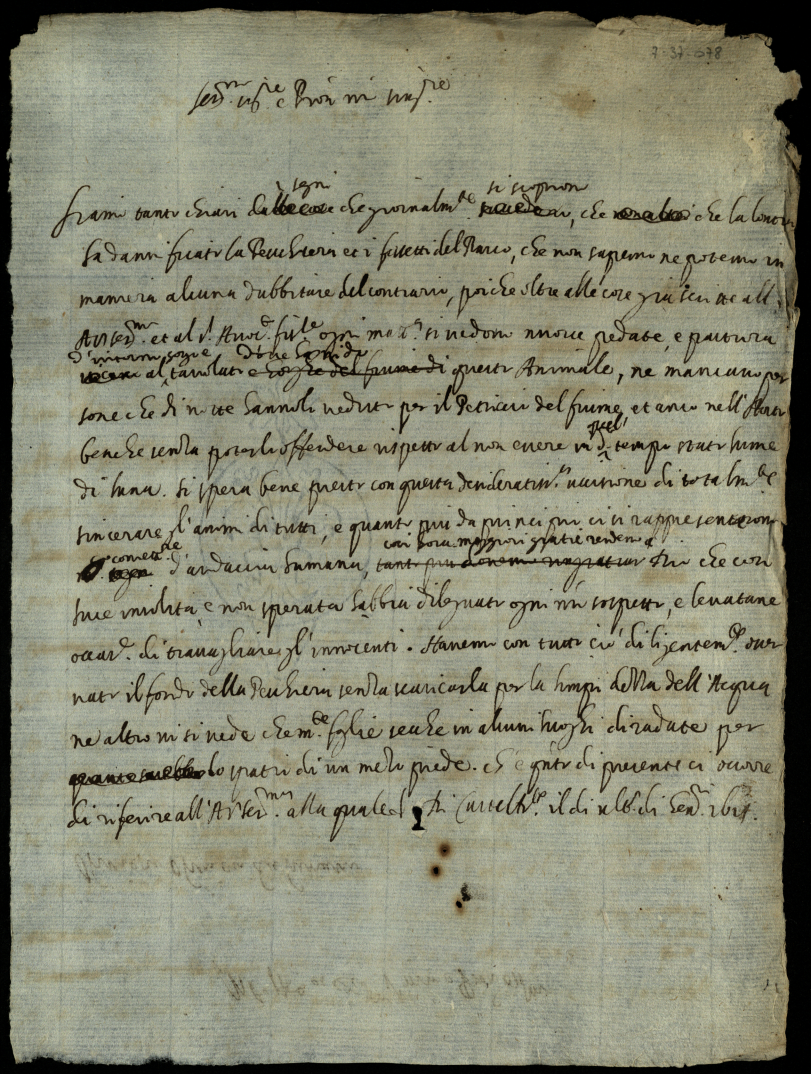 7-37-078
Ser.mo Sig.re e Pron mi
siamo tanto chiari dalle cose segni che giornalm.te succedono si scoprono, che non altro che la lontra
ha dannificato la Peschiera et i fossetti del Parco, che non sapremo ne potemo in
maniera alcuna dubbitare del contrario, poiche oltre alle cose già scritte all'
A V Ser.ma et al S.r ogni mat.a si vedono nuove pedate, e pastura
d'intorno al tavolato e foglie del fiume di questo Animale, ne mancano per
sone che di notte hannolo veduto per il del fiume, et anco nell' Horto
benche senza poterlo offendere rispetto al non essere in quel di tempo stato lume
di luna. Si spera bene presto con questa desideratis.a uccisione di totalm.te
sincerare gl'animi di tutti, e quanto più da principio ci si rappresentarono
d'audacia humana, tanto più così hora maggiori gratie rendemo a Dio che con
luce insolita, e non sperata habbia dileguato ogni mio sospetto, e levatane
occas.e di travagliare gl'innocenti. Havemo con tutto ciò diligentem.te osser
vato il fondo della Peschiera senza scaricarla per la limpidezza dell'Acqua
ne altro vi si vede che m.te foglie secche in alcuni luoghi diradate per
lo spatio di un mezo piede. ch'è q.nto di presente ci occorre
di riferire all'A V Ser.ma alla quale Di il di ult.o di Gen.o